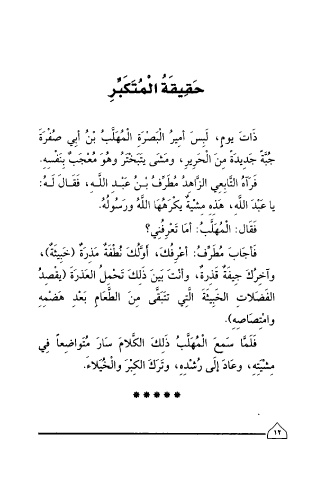 حَقِيقَةُ الْمُتَكَبِّرِ
ذَاتَ يومٍ، لَبِسَ أميرُ البَصْرَةِ المُهَلَّبُ بْنُ أبي صُفْرَةَ
جُبَّةً جَدِيدَةً مِنَ الْحَرِيرِ، ومَشَى يَتَبَخْتَرُ وهُوَ مُعْجَبٌ بِنَفْسِهِ.
فَرَآهُ التَّابِعِي الزَّاهِدُ مُطَرِّفُ بْنُ عَبْدِ اللَّهِ، فَقَالَ لَهُ:
يا عَبْدَ اللَّهِ، هَذِهِ مِشْيَةٌ يَكْرَهُهَا اللَّهُ ورَسُولُهُ.
فَقَال: الْمُهَلَّبُ: أمَا تَعرِفُنِي؟
فَأجَابَ مُطَرِّفُ: أعْرِفُكَ، أوَّلُكَ نُطْفَةٌ مَذِرَةٌ (خَبِيثَةٌ)،
وآخِرُكَ جِيفَةٌ قَذِرةٌ، وأنْتَ بَيْنَ ذَلِكَ تَحْمِلُ العَذِرَةَ (يقْصِدُ
الفَضَلاتِ الخَبِيثَةَ الَّتِي تَتَبَقَّى مِنَ الطَّعَامِ بَعْدِ هَضْمِهِ
وامْتِصَاصِهِ).
فَلَمَّا سَمِعَ الْمُهَلَّبُ ذَلِكَ الكَلَامَ سَارَ مُتَواضِعاً فِي
مِشْيَتِهِ، وعَادَ إلَى رُشْدِهِ، وتَرَكَ الكِبْرَ والْخُيَلاءَ.
*****
١٢